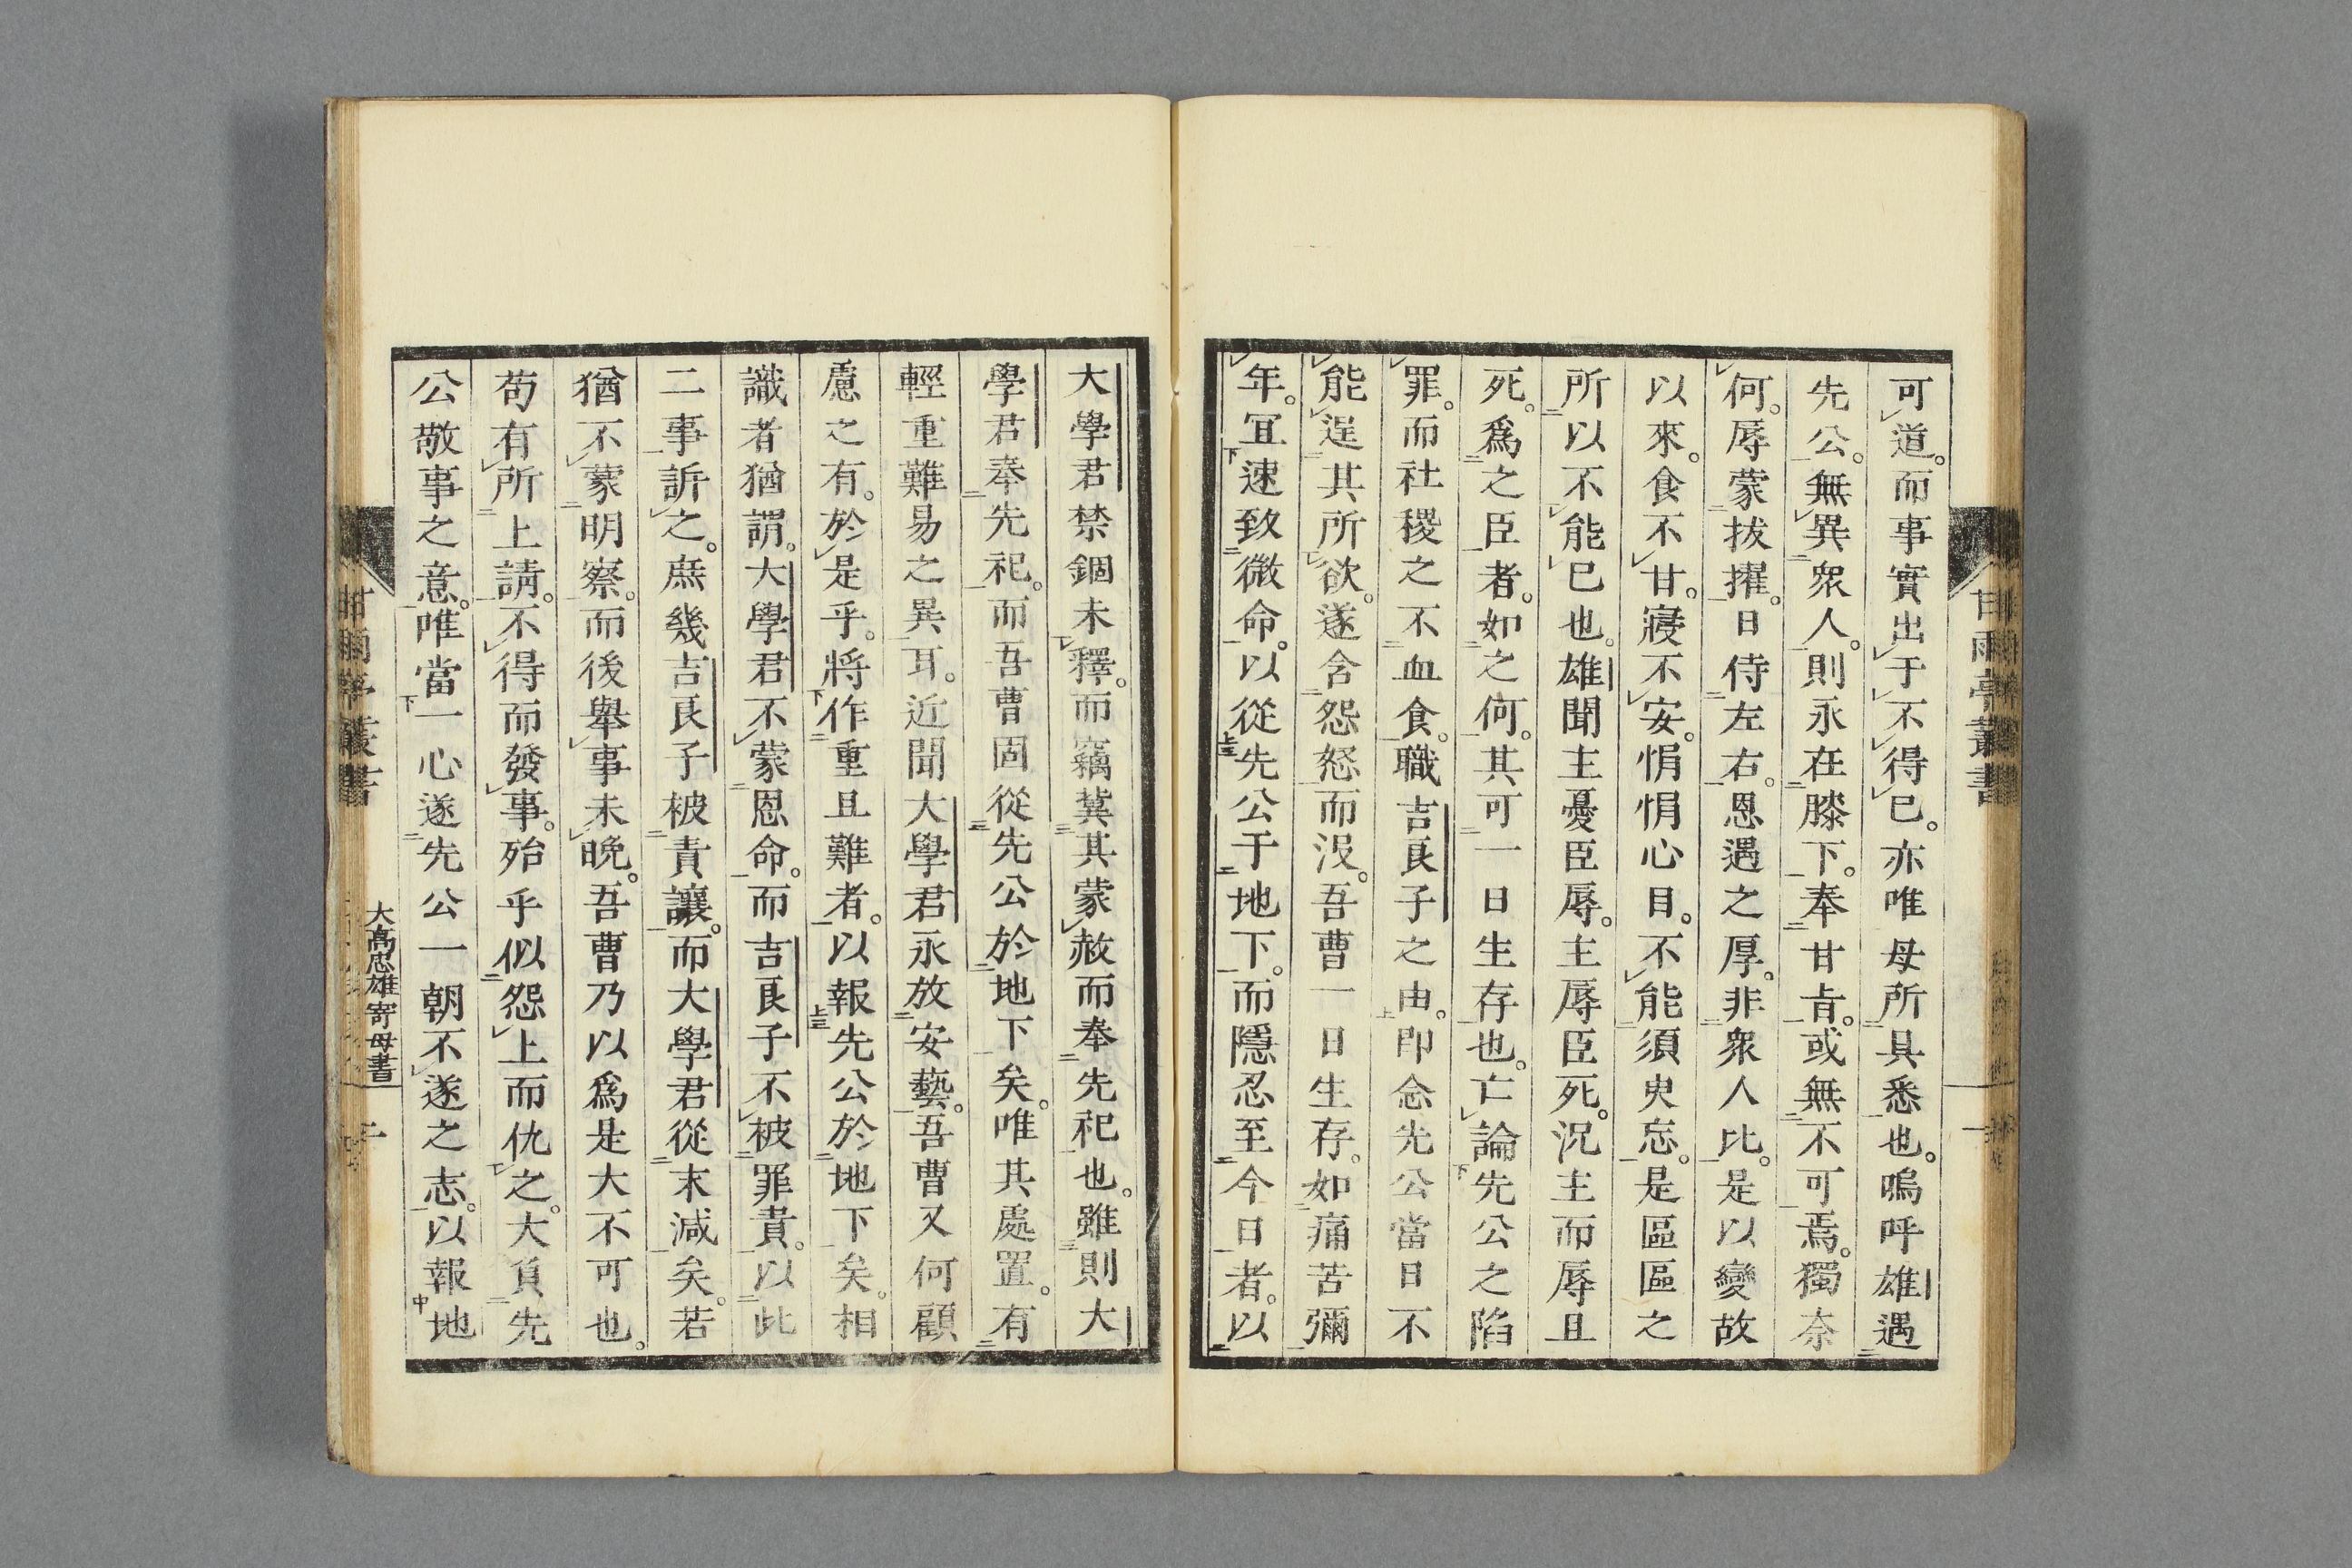 可道。而事實出于不得已。亦唯母所具悉也。嗚呼雄遇
先公。無異衆人。則永在膝下。奉甘旨。或無不可焉。獨奈
何。辱蒙拔擢。日侍左右。恩遇之厚。非衆人比。是以變故
以來。食不甘。寢不安。悁悁心目。不能須臾忘。是區區之
所以不能已也。雄聞主憂臣辱。主辱臣死。況主而辱且
死。爲之臣者。如之何。其可一日生存也。亡論先公之陷
罪。而社稷之不血食。職吉良子之由。即念先公當日不
能逞其所欲。遂含怨怒而沒。吾曹一日生存。如痛苦彌
年。宜速致微命。以從先公于地下。而隱忍至今日者。以
大學君禁錮未釋。而竊冀其蒙赦而奉先祀也。雖則大
學君奉先祀。而吾曹固從先公於地下矣。唯其處置。有
輕重難易之異耳。近聞大學君永放安藝。吾曹又何顧
慮之有。於是乎。將作重且難者。以報先公於地下矣。相
識者猶謂。大學君不蒙恩命。而吉良子不被罪責。以此
二事訢之。庶幾吉良子被責讓。而大學君從末減矣。若
猶不蒙明察。而後舉事未晩。吾曹乃以爲是大不可也。
苟有所上請。不得而發事。殆乎似怨上而仇之。大負先
公敬事之意。唯當一心遂先公一朝不遂之志。以報地
甘雨亭叢書
大高忠雄寄母書
二